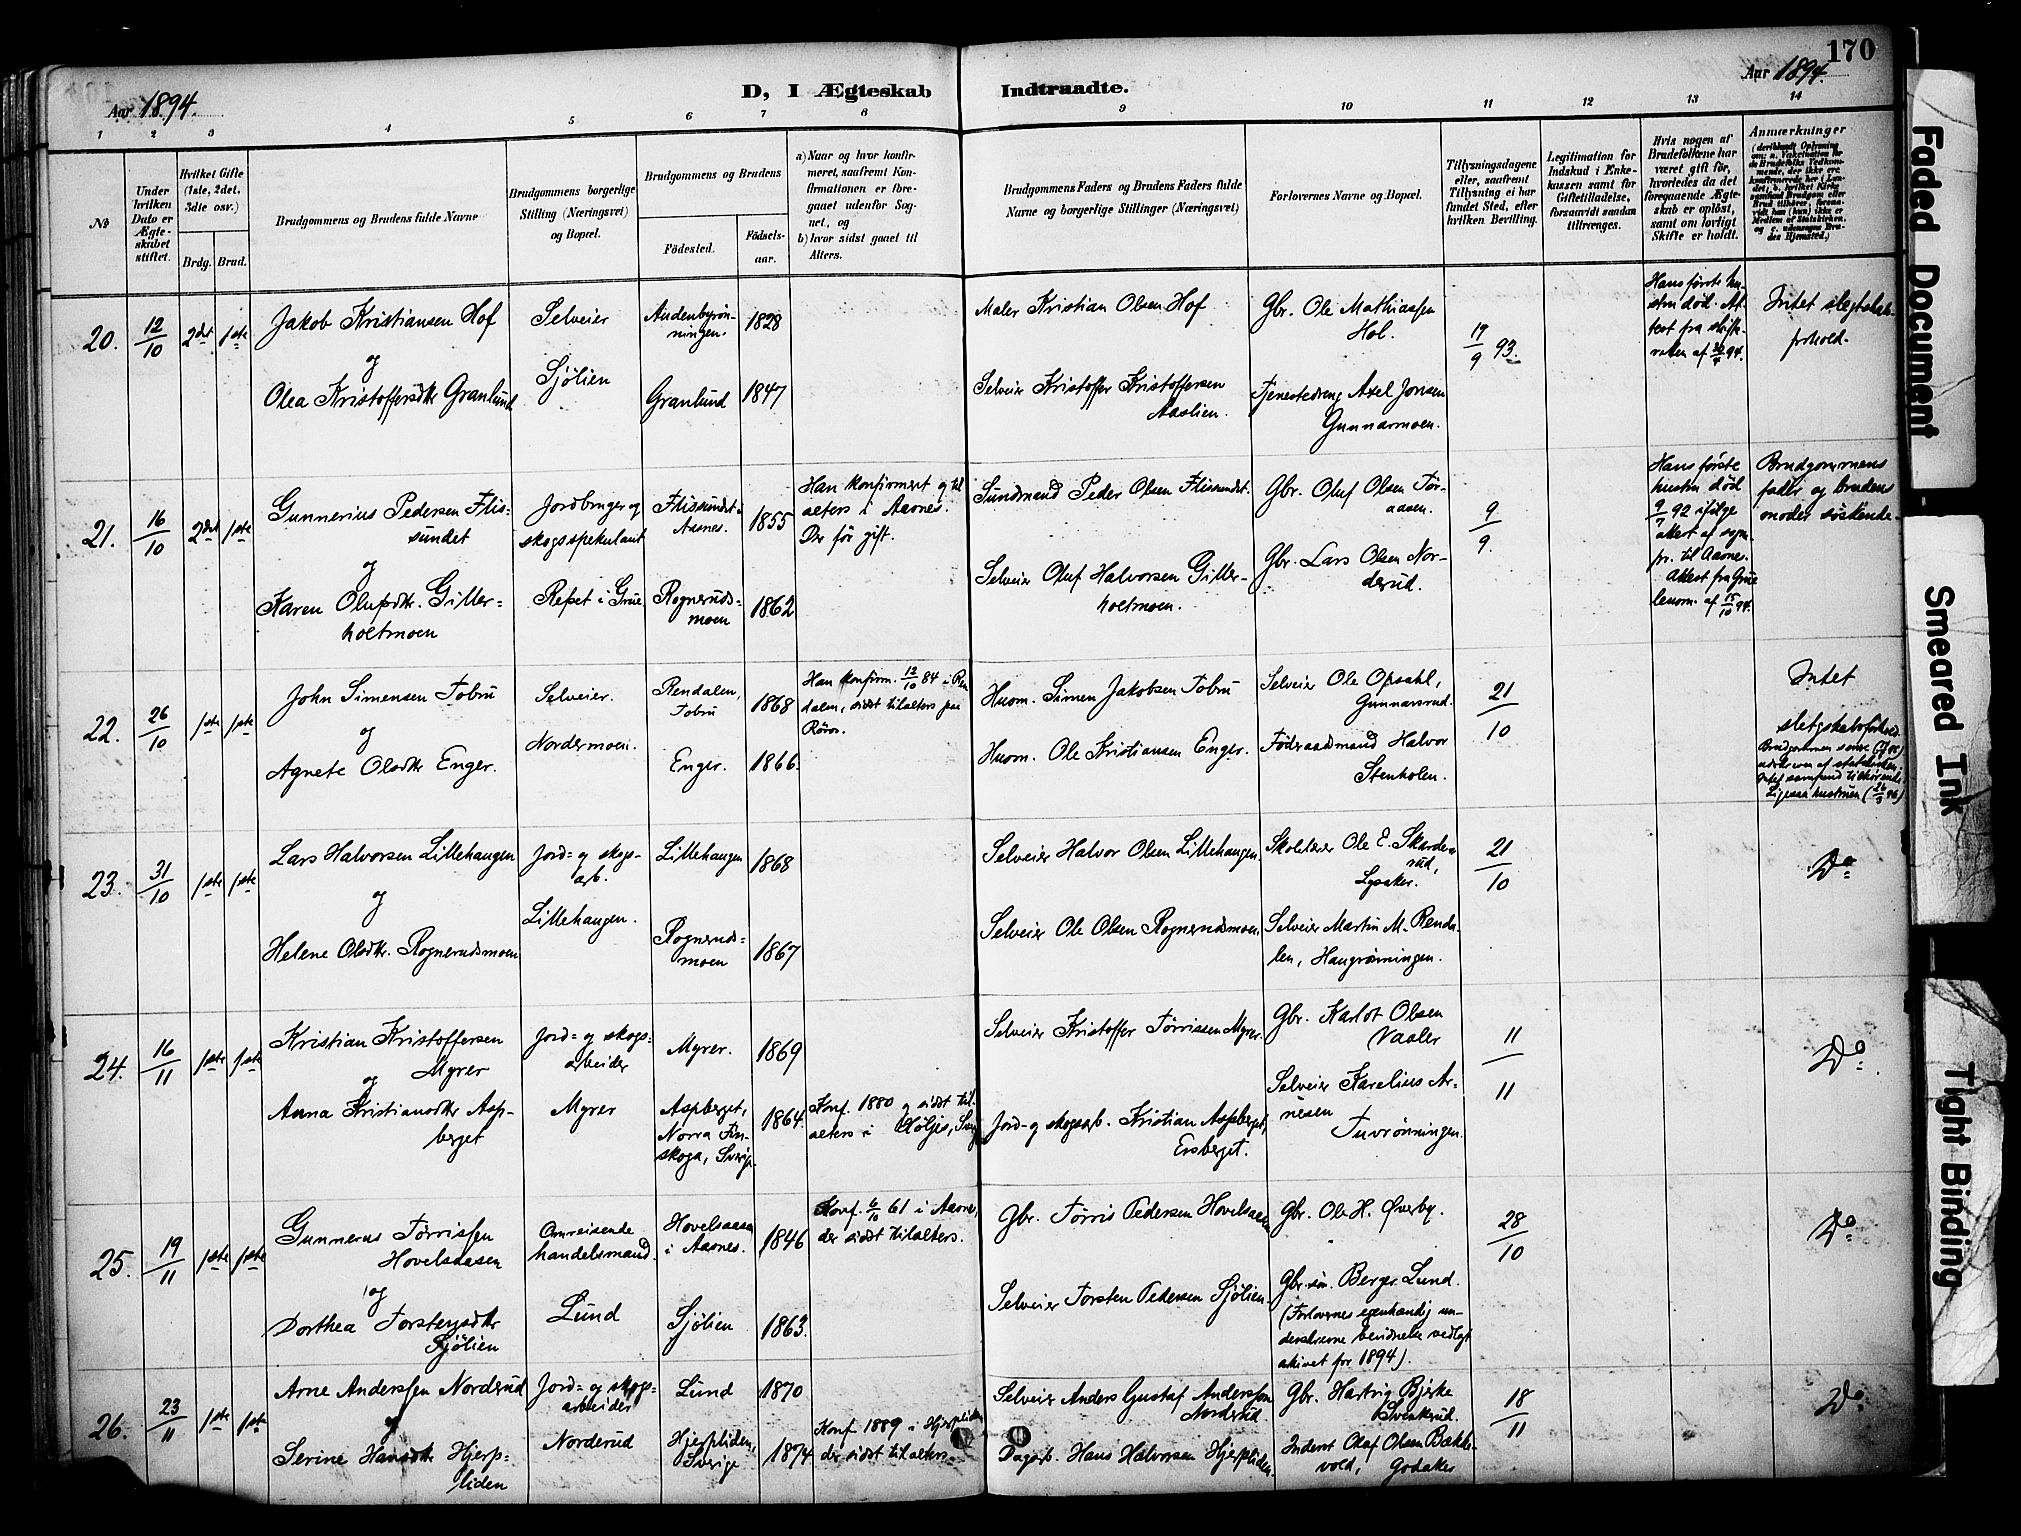 170
Aar 1894.
D, I Ægteskab Indtraadte.
Aar 1894.
1 2 3 4 5 6 7 8 9 10 11 12 13 14
No
Under hvilken Dato er Ægteskabet stiftet.
Hvilket Gifte (1ste, 2det, 3die osv.)
Brdg. Brud.
Brudgommens og Brudens fulde Navne
Brudgommens borgerlige Stilling (Næringsvei) og Bopæl.
Brudgommens og Brudens
Fødested.
Fødsels-aar.
a) Naar og hvor konfirmeret, saafremt Konfirmationen er foregaaet udenfor Sognet, og
b) hvor sidst gaaet til Alters.
Brudgommens Faders og Brudens Faders fulde Navne og borgerlige Stillinger (Næringsvei)
Forlovernes Navne og Bopæl.
Tillysningsdagene eller, saafremt Tillysning ei har fundet Sted, efter hvilken Bevilling.
Legitimation for Indskud i Enkekassen samt for Giftetilladelse, forsaavidt saadan tiltrænges.
Hvis nogen af Brudefolkene har været gift før, hvorledes da det foregaaende Ægteskab er opløst, samt om lovligt Skifte er holdt.
Anmærkninger
20. 12/10 2det 1ste
Jakob Kristiansen Hof
og
Olea Kristoffersdtr Granlund
Selveier
Sjølien
Andenbyrønningen. 1828
Granlund 1847
Maler Kristian Olsen Hof
Selveier Kristoffer Kristoffersen
Aaslien.
Gbr. Ole Mathiassen
Hol.
Tjenestedreng Axel Jonsen
Gunnarmoen.
17/9 93.
Hans første hustru død. Attest fra skifteretten af 94.
Intet slegtskabsforhold.
21. 16/10 2det 1ste
Gunnerius Pedersen Flissundet
og
Karen Olufsdtr. Gillerholtmoen
Jordbruger og
skogsspekulant
Repet i Grue
Flissundet i
Aasnes. 1855
Rognerudsmoen 1862
Han konfirmeret og til
alters i Aasnes.
Der før gift.
Sundmand Peder Olsen Flissundet.
Selveier Oluf Halvorsen Gillerholtmoen.
Gbr. Oluf Olsen Toraasen.
Gbr. Lars Olsen Norderud.
9/9.
Hans første
hustru død
9/7 92 ifølge
attest af sogn
pr. til Aasnes.
Attest fra Grue
lensm. af 15/10 94.
Brudgommens
fader og brudens
moder søskende.
22. 26/10 1ste 1ste
John Simensen Tobru
og
Agnete Olsdtr Enger.
Selveier.
Nordermoen.
Rendalen,
Tobru 1868
Enger. 1866.
Han konfirm. 12/10 84 i Rendalen, sidst tilalters paa
Røros.
Huom. Simen Jakobsen Tobru
Huom. Ole Kristiansen Enger.
Selveier Ole Opsahl,
Gunnarsrud.
Føderaadmand Halvor
Stenholen.
21/10
Intet
slegtskabsforhold.
23. 31/10 1ste 1ste
Lars Halvorsen Lillehaugen
og
Helene Olsdtr. Rognerudsmoen
Jord- og skogsarb.
Lillehaugen.
Lillehaugen 1868
Rognerudsmoen 1867
Selveier Halvor Olsen Lillehaugen
Selveier Ole Olsen Rognerudsmoen
Skolelærer Ole E. Skarderud,
Lysaker.
Selveier Martin M. Rendalen, Haugrønningen.
21/10
Do
24. 16/11 1ste 1ste
Kristian Kristoffersen
Myrer
og
Anna Kristiansdtr Aspberget
Jord- og skogsarbeider
Myrer
Myrer. 1869
Aspberget,
Norra Finskoga, Sverige 1864.
Konf. 1880 og sidst tilalters i Höljes, Sverig
Selveier Kristoffer Tørrissen Myrer.
Jord- og skogsarb. Kristian Aspberget,
Ersberget.
Gbr. Karlot Olsen
Vaaler
Selveier Karelius Arnesen
Tuvrønningen.
11/11
Do
25. 19/11 1ste 1ste
Gunnerus Tørrissen
Hovelsaasen
og
Dorthea Torstensdtr
Sjølien
Omreisende
handelsmand.
Lund
Hovelsaasen
i Aasnes. 1846
Sjølien 1863.
Konf. 6/10 61 i Aasnes,
der sidst tilalters.
Gbr. Tørris Pedersen Hovelsaasen
Selveier Torsten Pedersen Sjølien.
Gbr. Ole H. Øverby.
Gbr.søn. Berger Lund.
(Forlovernes egenhændig underskrevne bevidnelse vedlagt
arkivet for 1894).
28/10
Do
26. 23/11 1ste 1ste
Arne Anderssen Norderud
og
Serine Hansdtr Hjerpliden
Jord- og skogsarbeider
Norderud
Lund 1870
Hjerpliden,
Sverige 1874
Konf. 1889 i Hjerpliden
der sidst tilalters
Selveier Anders Gustaf Anderssøn
Norderud.
Dagarb. Hans Halvorsen Hjerpliden
Gbr. Hartvig Bjerke
Svenkerud.
Inderst Olaf Olsen Bækkevold, Godaker
18/11
Do
Faded Document
Smeared Ink
Tight Binding